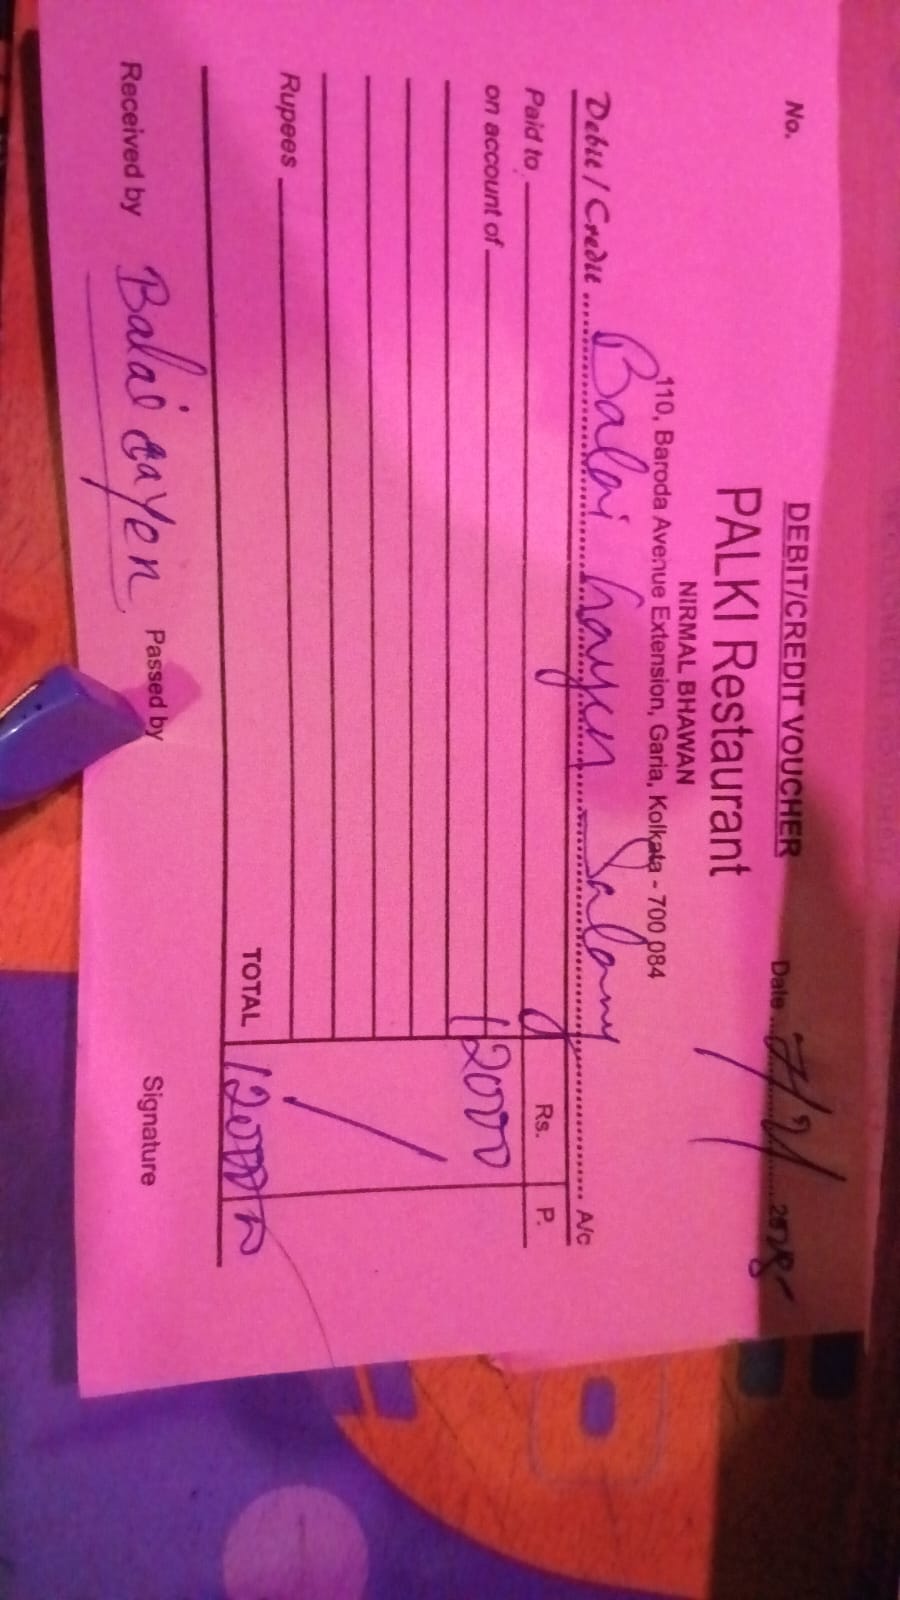 DEBIT/CREDIT VOUCHER
No. Date
PALKI Restaurant
NIRMAL BHAWAN
110, Baroda Avenue Extension, Garia, Kolkata - 700 084
Debit / Credit Balai Sayen Salary A/c
Paid to Rs. P.
on account of
12000
Rupees
TOTAL 12000
Received by Balai Sayen Passed by Signature